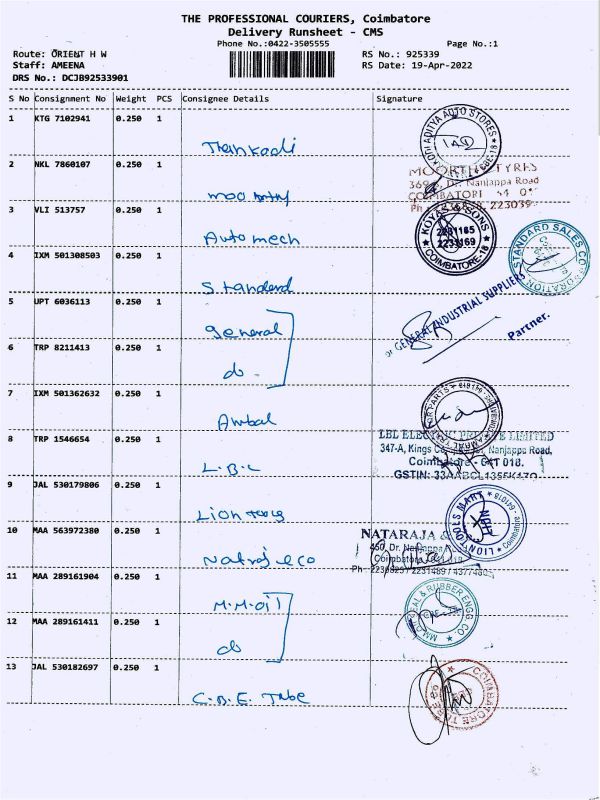 THE PROFESSIONAL COURIERS, Coimbatore
Delivery Runsheet - CMS
Phone No.:0422-3505555 Page No.:1
Route: ORIENT H W RS No.: 925339
Staff: AMEENA RS Date: 19-Apr-2022
DRS No.: DCJB92533901
S No Consignment No Weight PCS Consignee Details Signature
1 KTG 7102941 0.250 1
ADITYA AUTO STORES
2 NKL 7860107 0.250 1
MOORTHY TYRES
Dr. Nanjappa Road
COIMBATORE
3 VLI 513757 0.250 1
KOYAS & SONS
2231169
COIMBATORE-18
Automech
4 IXM 501308503 0.250 1
STANDARD SALES CORPORATION
Standard
5 UPT 6036113 0.250 1
general
GENERAL INDUSTRIAL SUPPLIERS
Partner.
6 TRP 8211413 0.250 1
do.
7 IXM 501362632 0.250 1
Ambal
8 TRP 1546654 0.250 1
LBL ELECTRIC PRIVATE LIMITED
347-A, Kings Nanjappa Road,
Coimbatore - 641 018.
GSTIN:
L.B.L
9 JAL 530179806 0.250 1
LION TOOLS MART
Coimbatore
641018
Lion tools
10 MAA 563972380 0.250 1
NATARAJA &
450, Dr. Nanjappa
Coimbatore
Natraj & co
11 MAA 289161904 0.250 1
M.M.oil
MM OIL SEAL & RUBBER ENGG CO
12 MAA 289161411 0.250 1
do
13 JAL 530182697 0.250 1
COIMBATORE
C.B.E. Tube